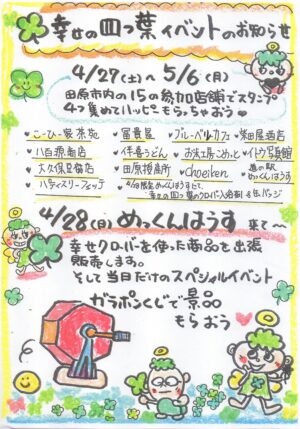 幸せの四つ葉イベントのお知らせ
4/27(土)〜5/6(月)
田原市内の15の参加店舗でスタンプ
4つ集めてハッピーもらっちゃおう
こーひー家茶苑 冨貴屋 ブルーベルカフェ 柴田屋酒店
八百源商店 伴喜うどん お米工房こめっと イトウ写真館
大久保星脩店 田原授産所 choeiken 道の駅めっくんはうす
パティスリーフェッテ
幸せの四つ葉のクローバー入浴剤
4/28(月) めっくんはうす 東で〜
幸せクローバーを使った商品を出張
販売します。
そして当日だけのスペシャルイベント
ガラポンくじで景品
もらおう